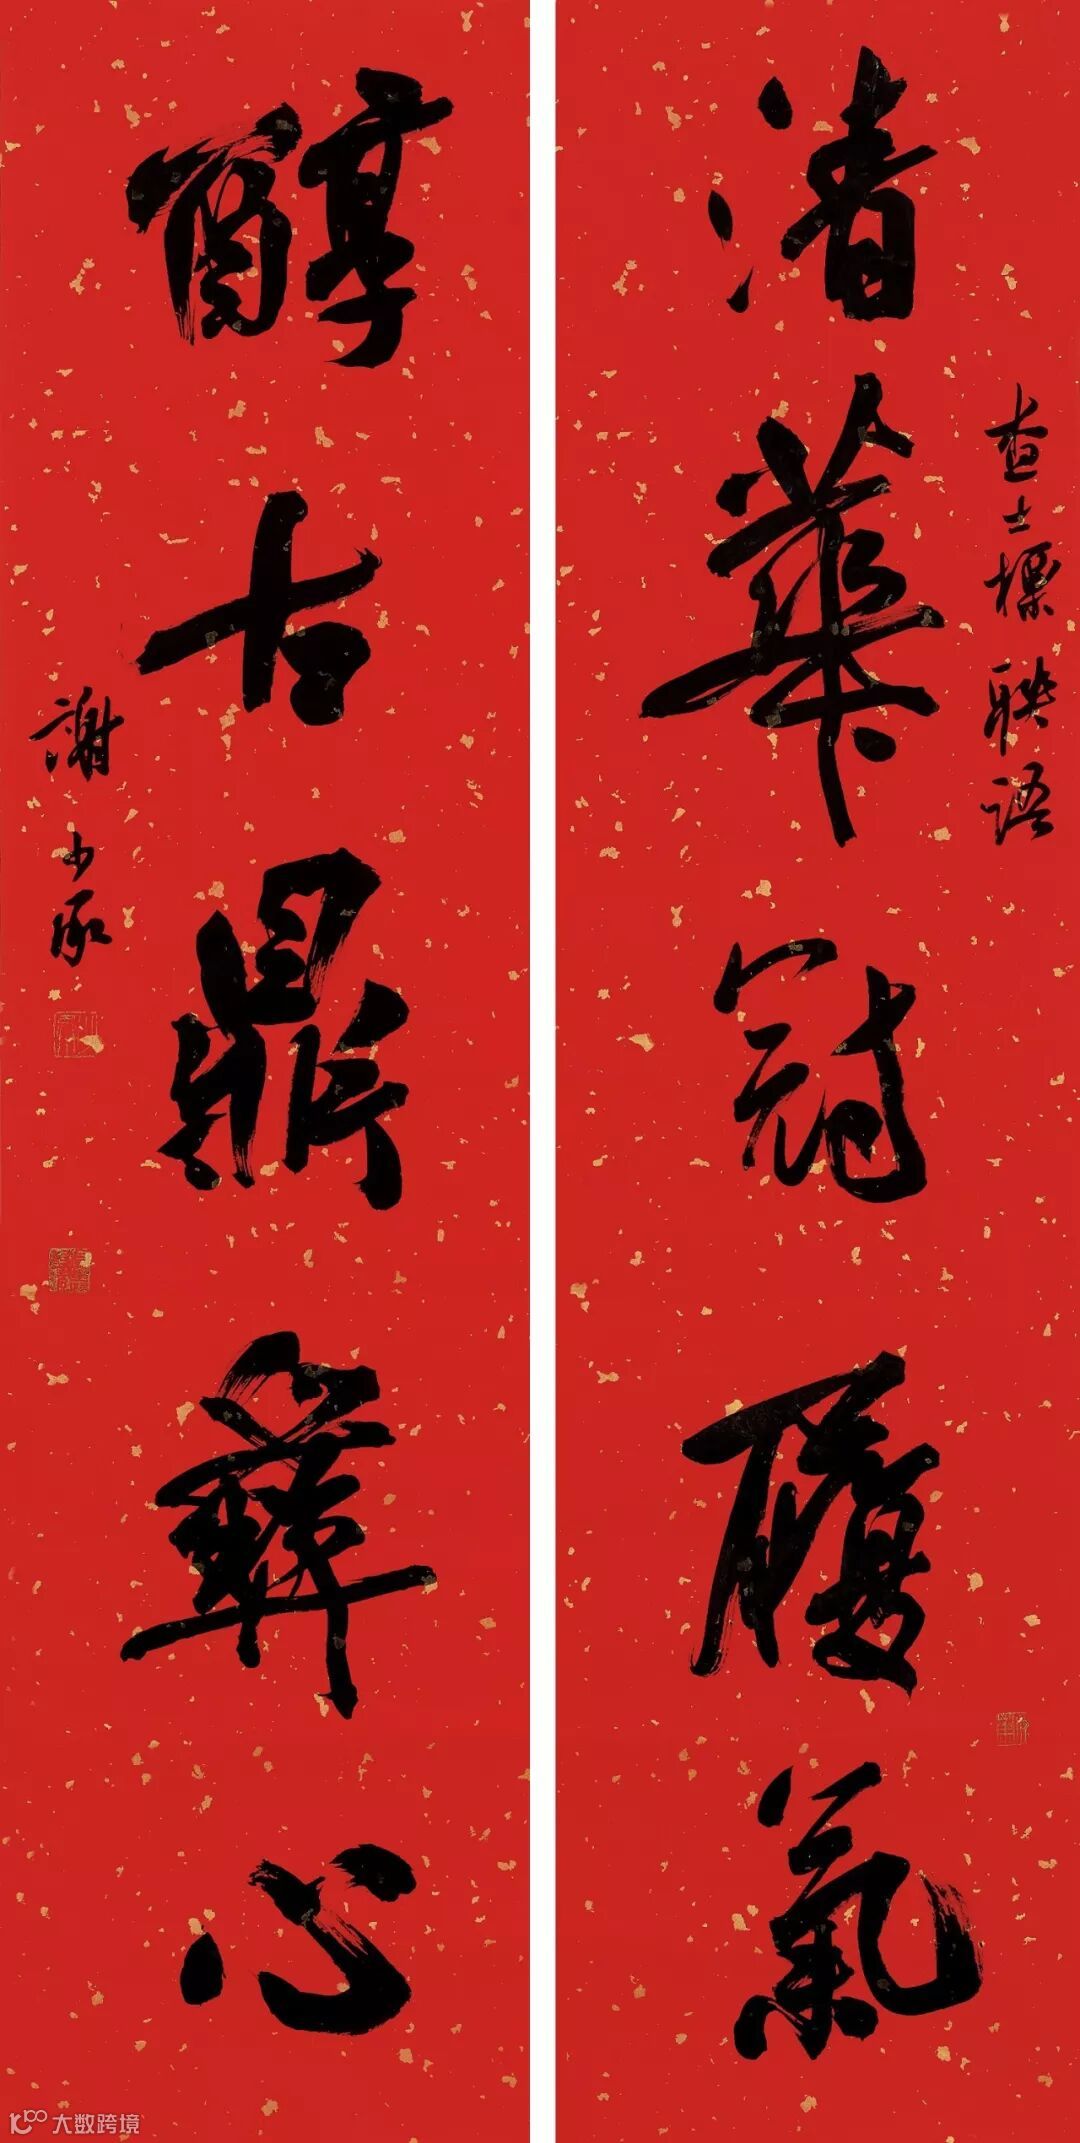 查士標聯語
清華冠履氣
醇古鼎彝心
謝少承
大数跨境